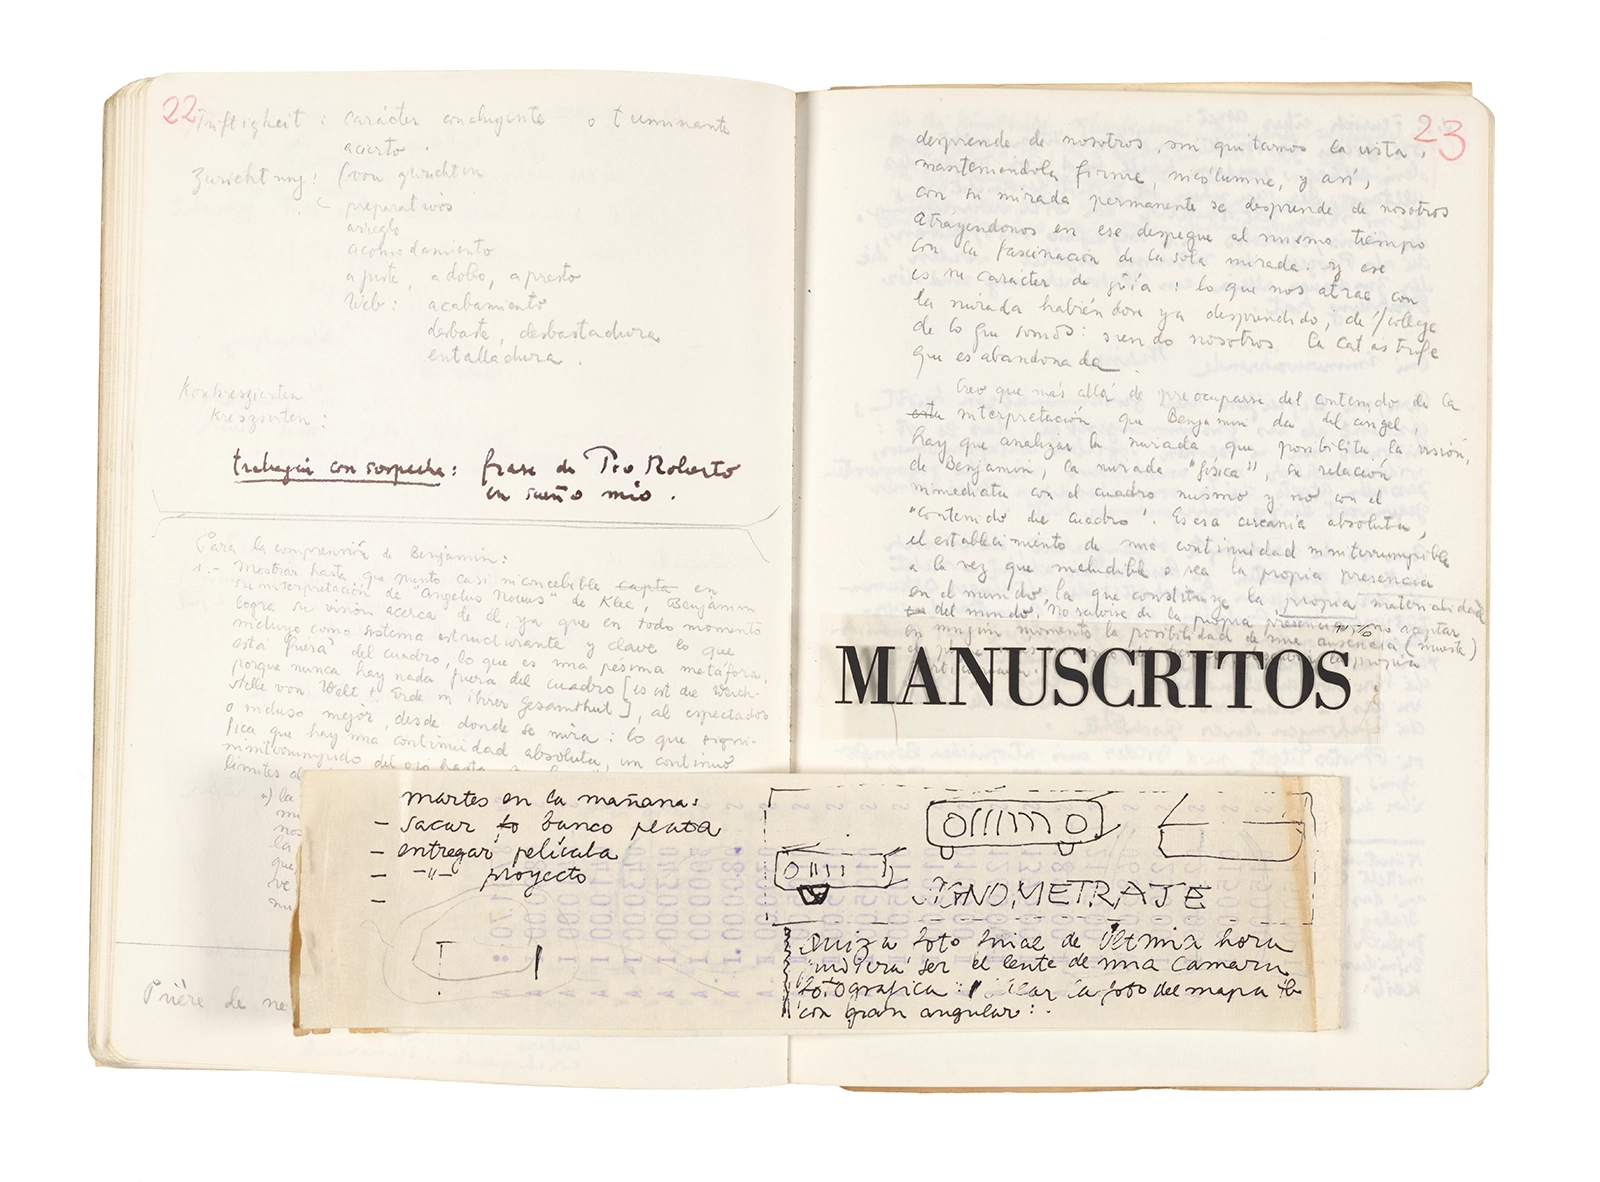 22
Triftigkeit : carácter concluyente o terminante
acierto .
Zurichtung : (von zurichten
preparativos
arreglo
acomodamiento
ajuste, adobo, apresto
Web : acabamiento
desbaste, desbastadura
entalladura .
Konkreszierten
Kreszierten :
trabajar con sospecha : frase de Tío Roberto
en sueño mío .
Para la comprensión de Benjamin :
1.- Mostrar hasta que punto casi inconcebible capta en
su interpretación de "Angelus Novus" de Klee, Benjamin
logra su visión acerca de él, ya que en todo momento
incluye como sistema estructurante y clave lo que
está fuera del cuadro, lo que es una pésima metáfora,
porque nunca hay nada fuera del cuadro [es ist die Werk-
stelle von Welt + Erde in ihrer Gesamtheit], al espectador
o incluso mejor, desde donde se mira : lo que signi-
fica que hay una continuidad absoluta, un continuo
ininterrumpido del ojo hasta
límites
a) la
nos
la
que
Prière de ne
23
desprende de nosotros, sin quitarnos la vista,
manteniéndola firme, incólumne, y así,
con su mirada permanente se desprende de nosotros
atrayéndonos en ese despegue al mismo tiempo
con la fascinación de la sola mirada. Y ese
es su carácter de guía : lo que nos atrae con
la mirada habiéndose ya desprendido, de
de lo que somos : siendo nosotros la catástrofe
que es abandonada
Creo que más allá de preocuparse del contenido de la
esta interpretación, que Benjamin da del angel,
hay que analizar la mirada que posibilita la visión,
de Benjamin, la mirada "física", su relación
inmediata con el cuadro mismo y no con el
"contenido del cuadro". Es esa cercanía absoluta,
el establecimiento de una continuidad ininterrumpible
a la vez que ineludible o sea la propia presencia
en el mundo, la que constituye la propia materialidad
del mundo. No salirse de la propia presencia, no aceptar
en ningún momento la posibilidad de una ausencia (muerte)
MANUSCRITOS
martes en la mañana :
- sacar banco plata
- entregar película
- -"- proyecto
-
SIGNOMETRAJE
Quizá foto final de Última hora
pudiera ser el lente de una cámara
fotográfica : la foto del mapa
con gran angular : .